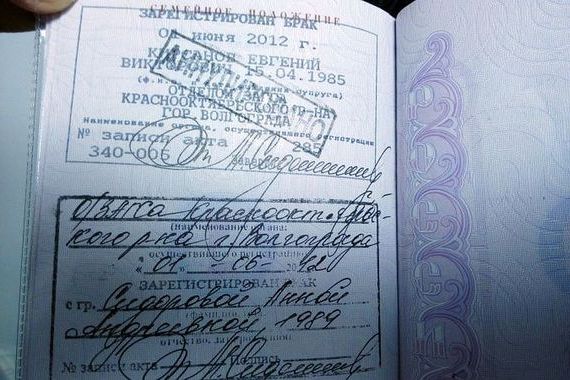 СЕМЕЙНОЕ ПОЛОЖЕНИЕ
ЗАРЕГИСТРИРОВАН БРАК
01 июня 2012 г.
ЕВГЕНИЙ
ВИКТОРОВИЧ 15.04.1985
ОТДЕЛОМ ЗАГСА
КРАСНООКТЯБРЬСКОГО Р-НА
ГОР. ВОЛГОГРАДА
наименование органа, осуществившего регистрацию
№ записи акта 285
340-006
О/ЗАГСа Краснооктябрьс-
кого р-на г. Волгограда
(наименование органа,
осуществившего регистрацию)
" 01 " 06
ЗАРЕГИСТРИРОВАН БРАК
с гр. Сидоровой Анной
Андреевной, 1989
№ записи акта Подпись